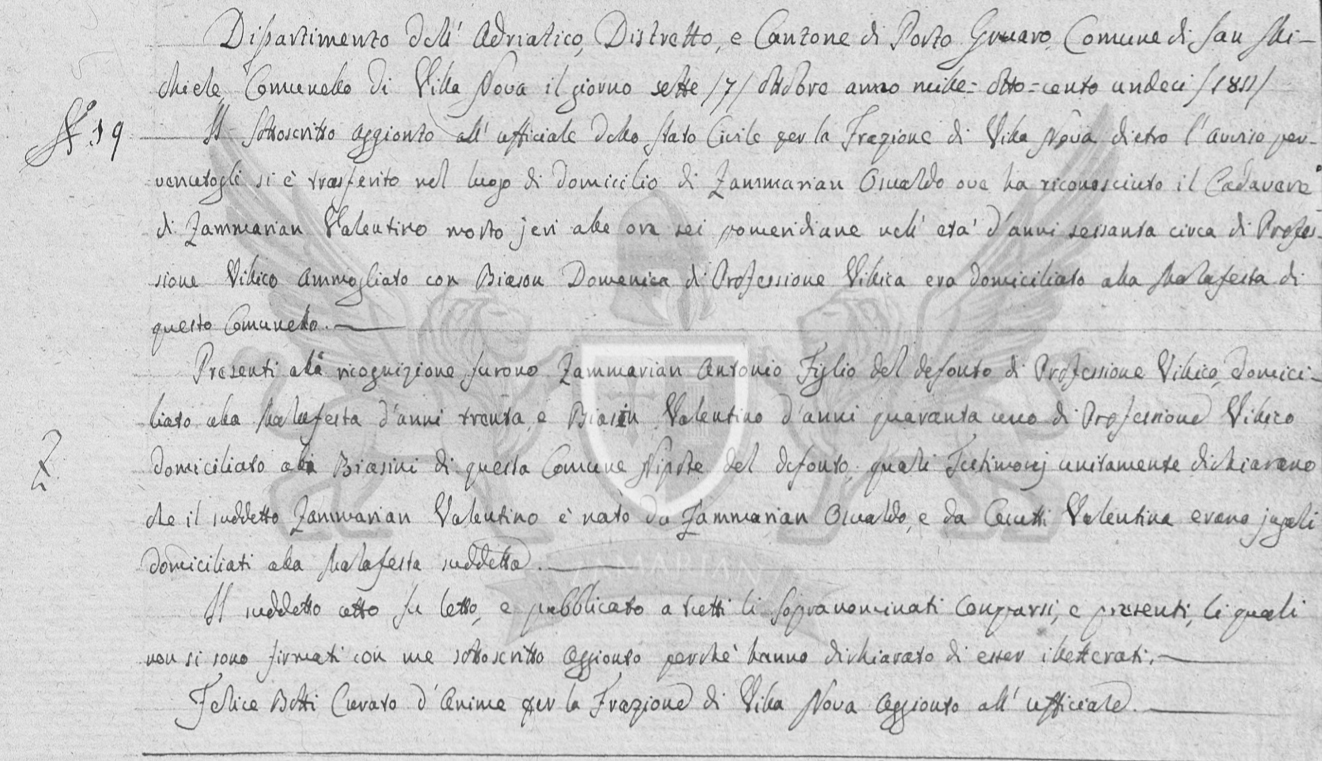 Dipartimento dell' Adriatico, Distretto, e Cantone di Porto Gruaro, Comune di San Mi-
chiele Comunello di Villa Nova il giorno sette /7/ Ottobre anno mille=otto=cento undeci /1811/
N.° 19
Il Sottoscritto Aggionto all' ufficiale dello Stato Civile per la Frazione di Villa Nova dietro l'Avviso per-
venutogli si è trasferito nel luogo di domicilio di Zammarian Osvaldo ove ha riconosciuto il Cadavere
di Zammarian Valentino morto jeri alle ore sei pomeridiane nell' età d'anni sessanta circa di Profes-
sione Villico Ammogliato con Biason Domenica di Professione Villica era domiciliato alla Malafesta di
questo Comunello.
Presenti alla ricognizione furono Zammarian Antonio Figlio del defonto di Professione Villico, domici-
liato alla Malafesta d'anni trenta e Biasin Valentino d'anni quaranta uno di Professione Villico
domiciliato alli Biasini di questa Comune Nipote del defonto, quali Testimonj unitamente dichiarano
che il suddetto Zammarian Valentino è nato da Zammarian Osvaldo, e da Cecutti Valentina erano jugali
domiciliati alla Malafesta suddetta.
ZAMARIAN
Il suddetto atto fu letto, e pubblicato a tutti li Sopranominati Comparsi, e presenti, li quali
non si sono firmati con me sottoscritto Aggionto perchè hanno dichiarato di esser illetterati.
Felice Botti Curato d'Anime per la Frazione di Villa Nova Aggionto all' ufficiale.